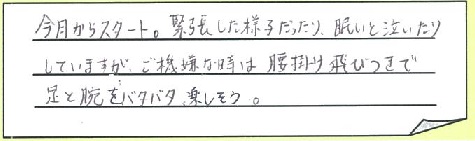 今月からスタート。緊張した様子だったり、眠いと泣いたり
していますが、ご機嫌な時は腰掛け飛びつきで
足と腕をバタバタ楽しそう。